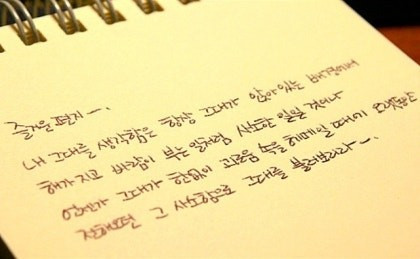 즐거운 편지 ─.
내 그대를 생각함은 항상 그대가 앉아있는 배경에서
해가 지고 바람이 부는 일처럼 사소한 일일 것이나
언젠가 그대가 한없이 괴로움 속을 헤매일 때에 오랫동안
전해오던 그 사소함으로 그대를 불러보리라 ─.